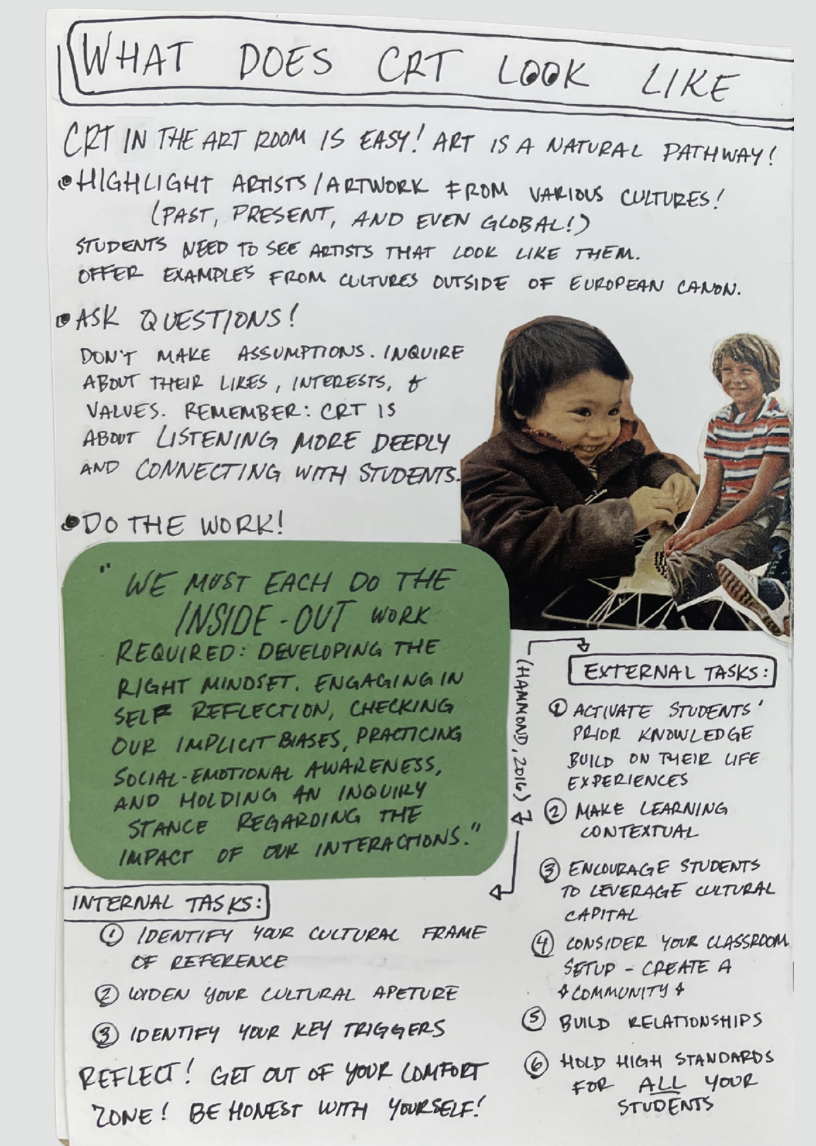 WHAT DOES CRT LOOK LIKE
CRT IN THE ART ROOM IS EASY! ART IS A NATURAL PATHWAY!
• HIGHLIGHT ARTISTS/ARTWORK FROM VARIOUS CULTURES!
(PAST, PRESENT, AND EVEN GLOBAL!)
STUDENTS NEED TO SEE ARTISTS THAT LOOK LIKE THEM.
OFFER EXAMPLES FROM CULTURES OUTSIDE OF EUROPEAN CANON.
• ASK QUESTIONS!
DON'T MAKE ASSUMPTIONS. INQUIRE
ABOUT THEIR LIKES, INTERESTS, &
VALUES. REMEMBER: CRT IS
ABOUT LISTENING MORE DEEPLY
AND CONNECTING WITH STUDENTS.
• DO THE WORK!
"WE MUST EACH DO THE
INSIDE-OUT WORK
REQUIRED: DEVELOPING THE
RIGHT MINDSET. ENGAGING IN
SELF REFLECTION, CHECKING
OUR IMPLICIT BIASES, PRACTICING
SOCIAL-EMOTIONAL AWARENESS,
AND HOLDING AN INQUIRY
STANCE REGARDING THE
IMPACT OF OUR INTERACTIONS."
(HAMMOND, 2016)
INTERNAL TASKS:
① IDENTIFY YOUR CULTURAL FRAME
OF REFERENCE
② WIDEN YOUR CULTURAL APETURE
③ IDENTIFY YOUR KEY TRIGGERS
REFLECT! GET OUT OF YOUR COMFORT
ZONE! BE HONEST WITH YOURSELF!
EXTERNAL TASKS:
① ACTIVATE STUDENTS'
PRIOR KNOWLEDGE
BUILD ON THEIR LIFE
EXPERIENCES
② MAKE LEARNING
CONTEXTUAL
③ ENCOURAGE STUDENTS
TO LEVERAGE CULTURAL
CAPITAL
④ CONSIDER YOUR CLASSROOM
SETUP - CREATE A
COMMUNITY
⑤ BUILD RELATIONSHIPS
⑥ HOLD HIGH STANDARDS
FOR ALL YOUR
STUDENTS